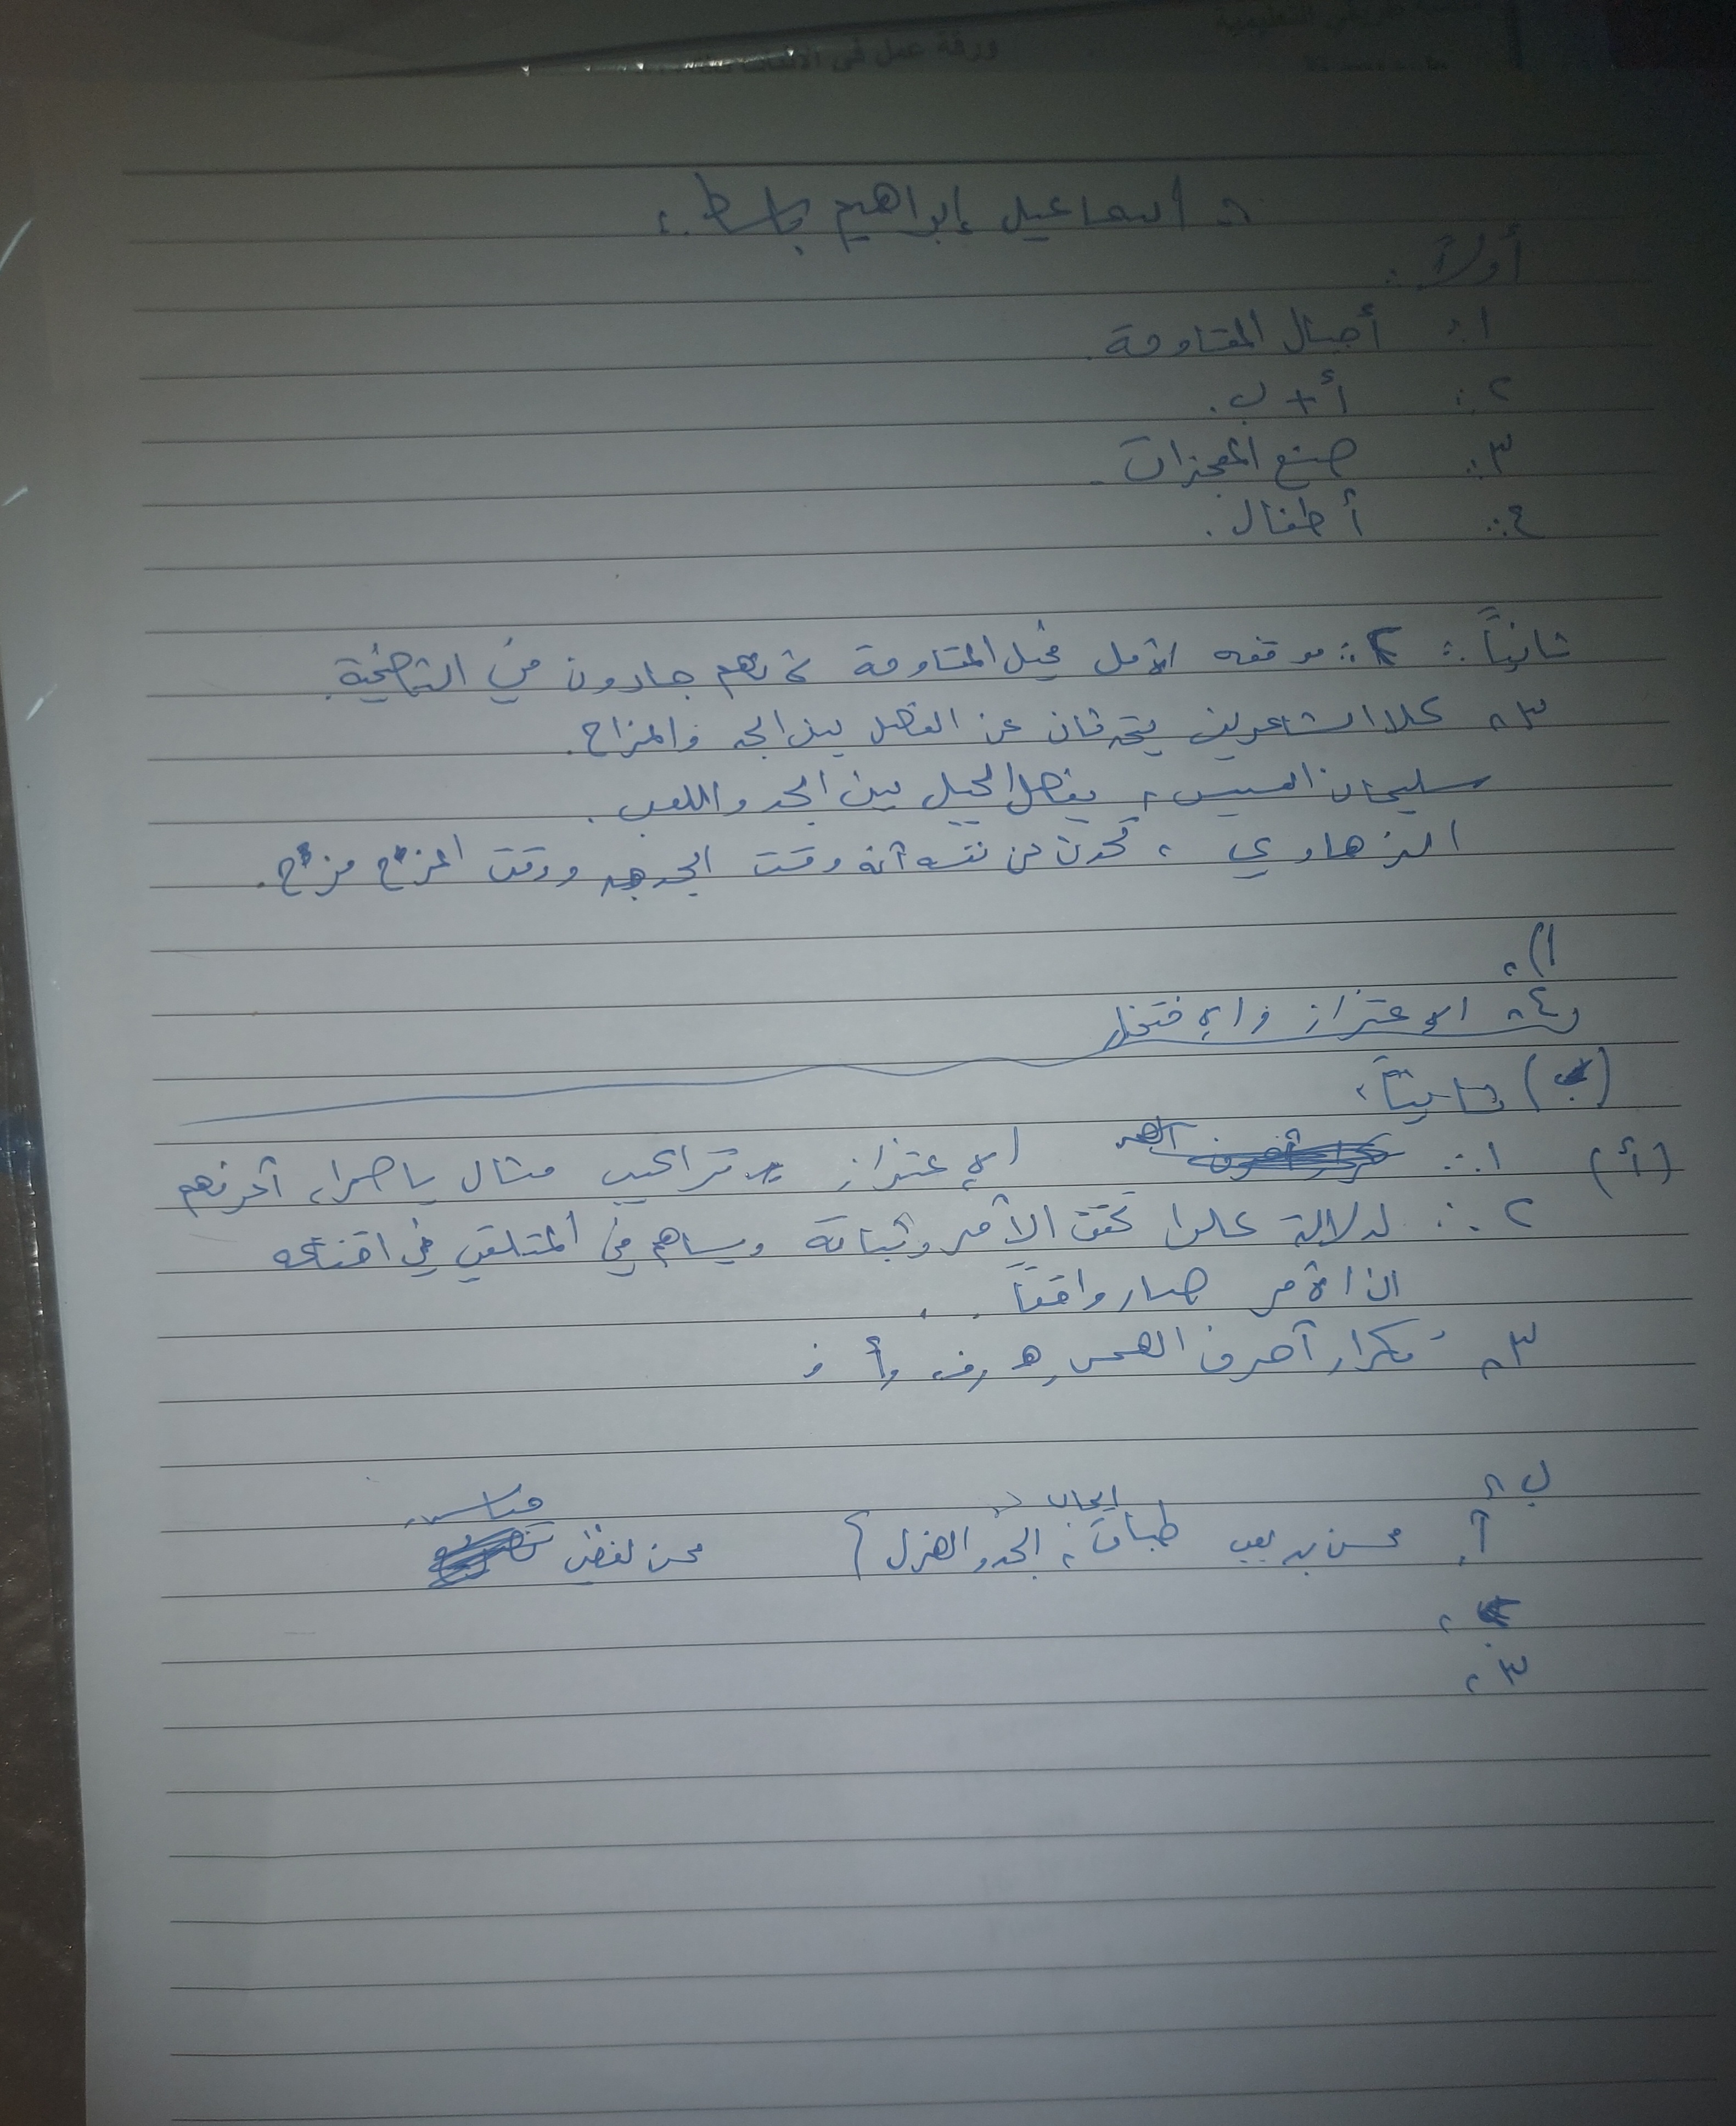 ورقة عمل في
اسماعيل إبراهيم باسط :
أولاً :
١: أجيال المقاومة .
٢: أ + ب .
٣: صنع المعجزات .
٤: أطفال .
ثانياً : ٢: موقفه الأمل بجيل المقاومة لأنهم جادون في التضحية .
٣: كلا الشاعرين يتحدثان عن الفصل بين الجد والمزاح .
سليمان العيسى : يفصل الجيل بين الجد واللعب .
الزهاوي : تحدث عن نفسه أنه وقت الجد جد ووقت المزح مزح .
١) :
٤: الاعتزاز والإفتخار
(ب) ثانياً :
(أ) ١: الإعتزاز تراكيب مثال يا صغار، أعرفهم
٢: لدلالة على تحقق الأمر وثباته ويساهم في المتلقي في اقناعه
ان الأمر صار واقعاً .
٣: تكرار أحرف الهمس ه وف وأ
ب :
أ: محسن بديعي طباق إيجاب : الجد والهزل } محسن لفظي
٣: